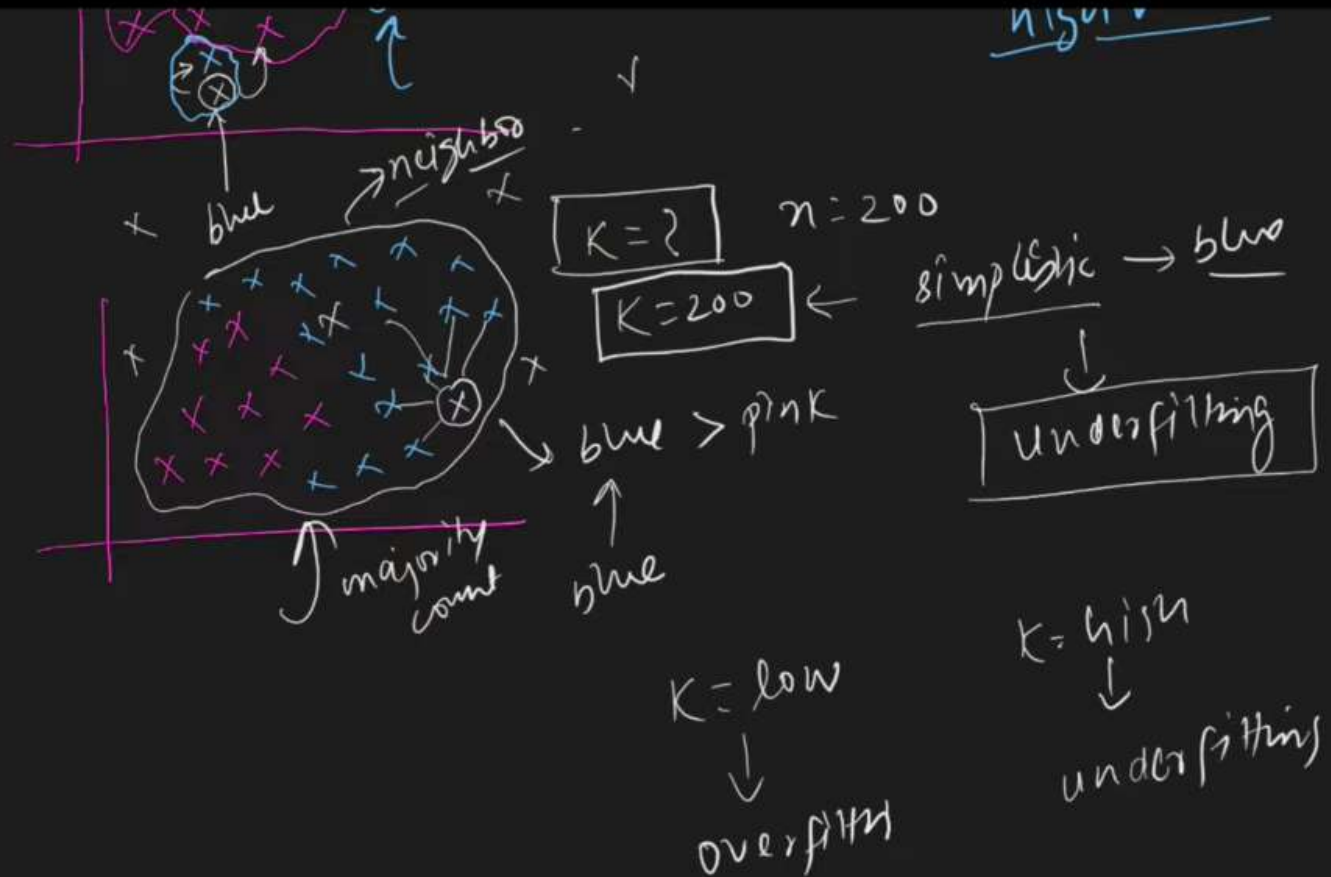 blue
neighbo
K = ?
n = 200
K = 200 ← simplistic → blue
underfitting
blue > pink
blue
majority
count
K = low
overfitt
K = high
underfitting